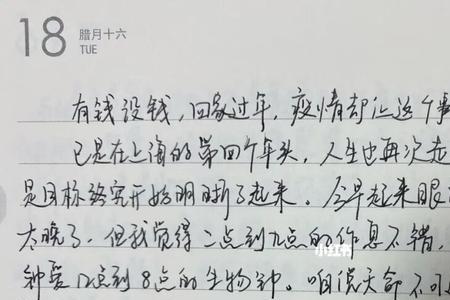 18 腊月十六
TUE
有钱没钱，回家过年，疫情却让这个事
已是在上海的第四个年头，人生也再次走
是目标终究开始明晰了起来。今早起来眼
太晚了，但我觉得二点到九点的作息不错，
钟爱12点到8点的生物钟。咱俱天命不可
小红书